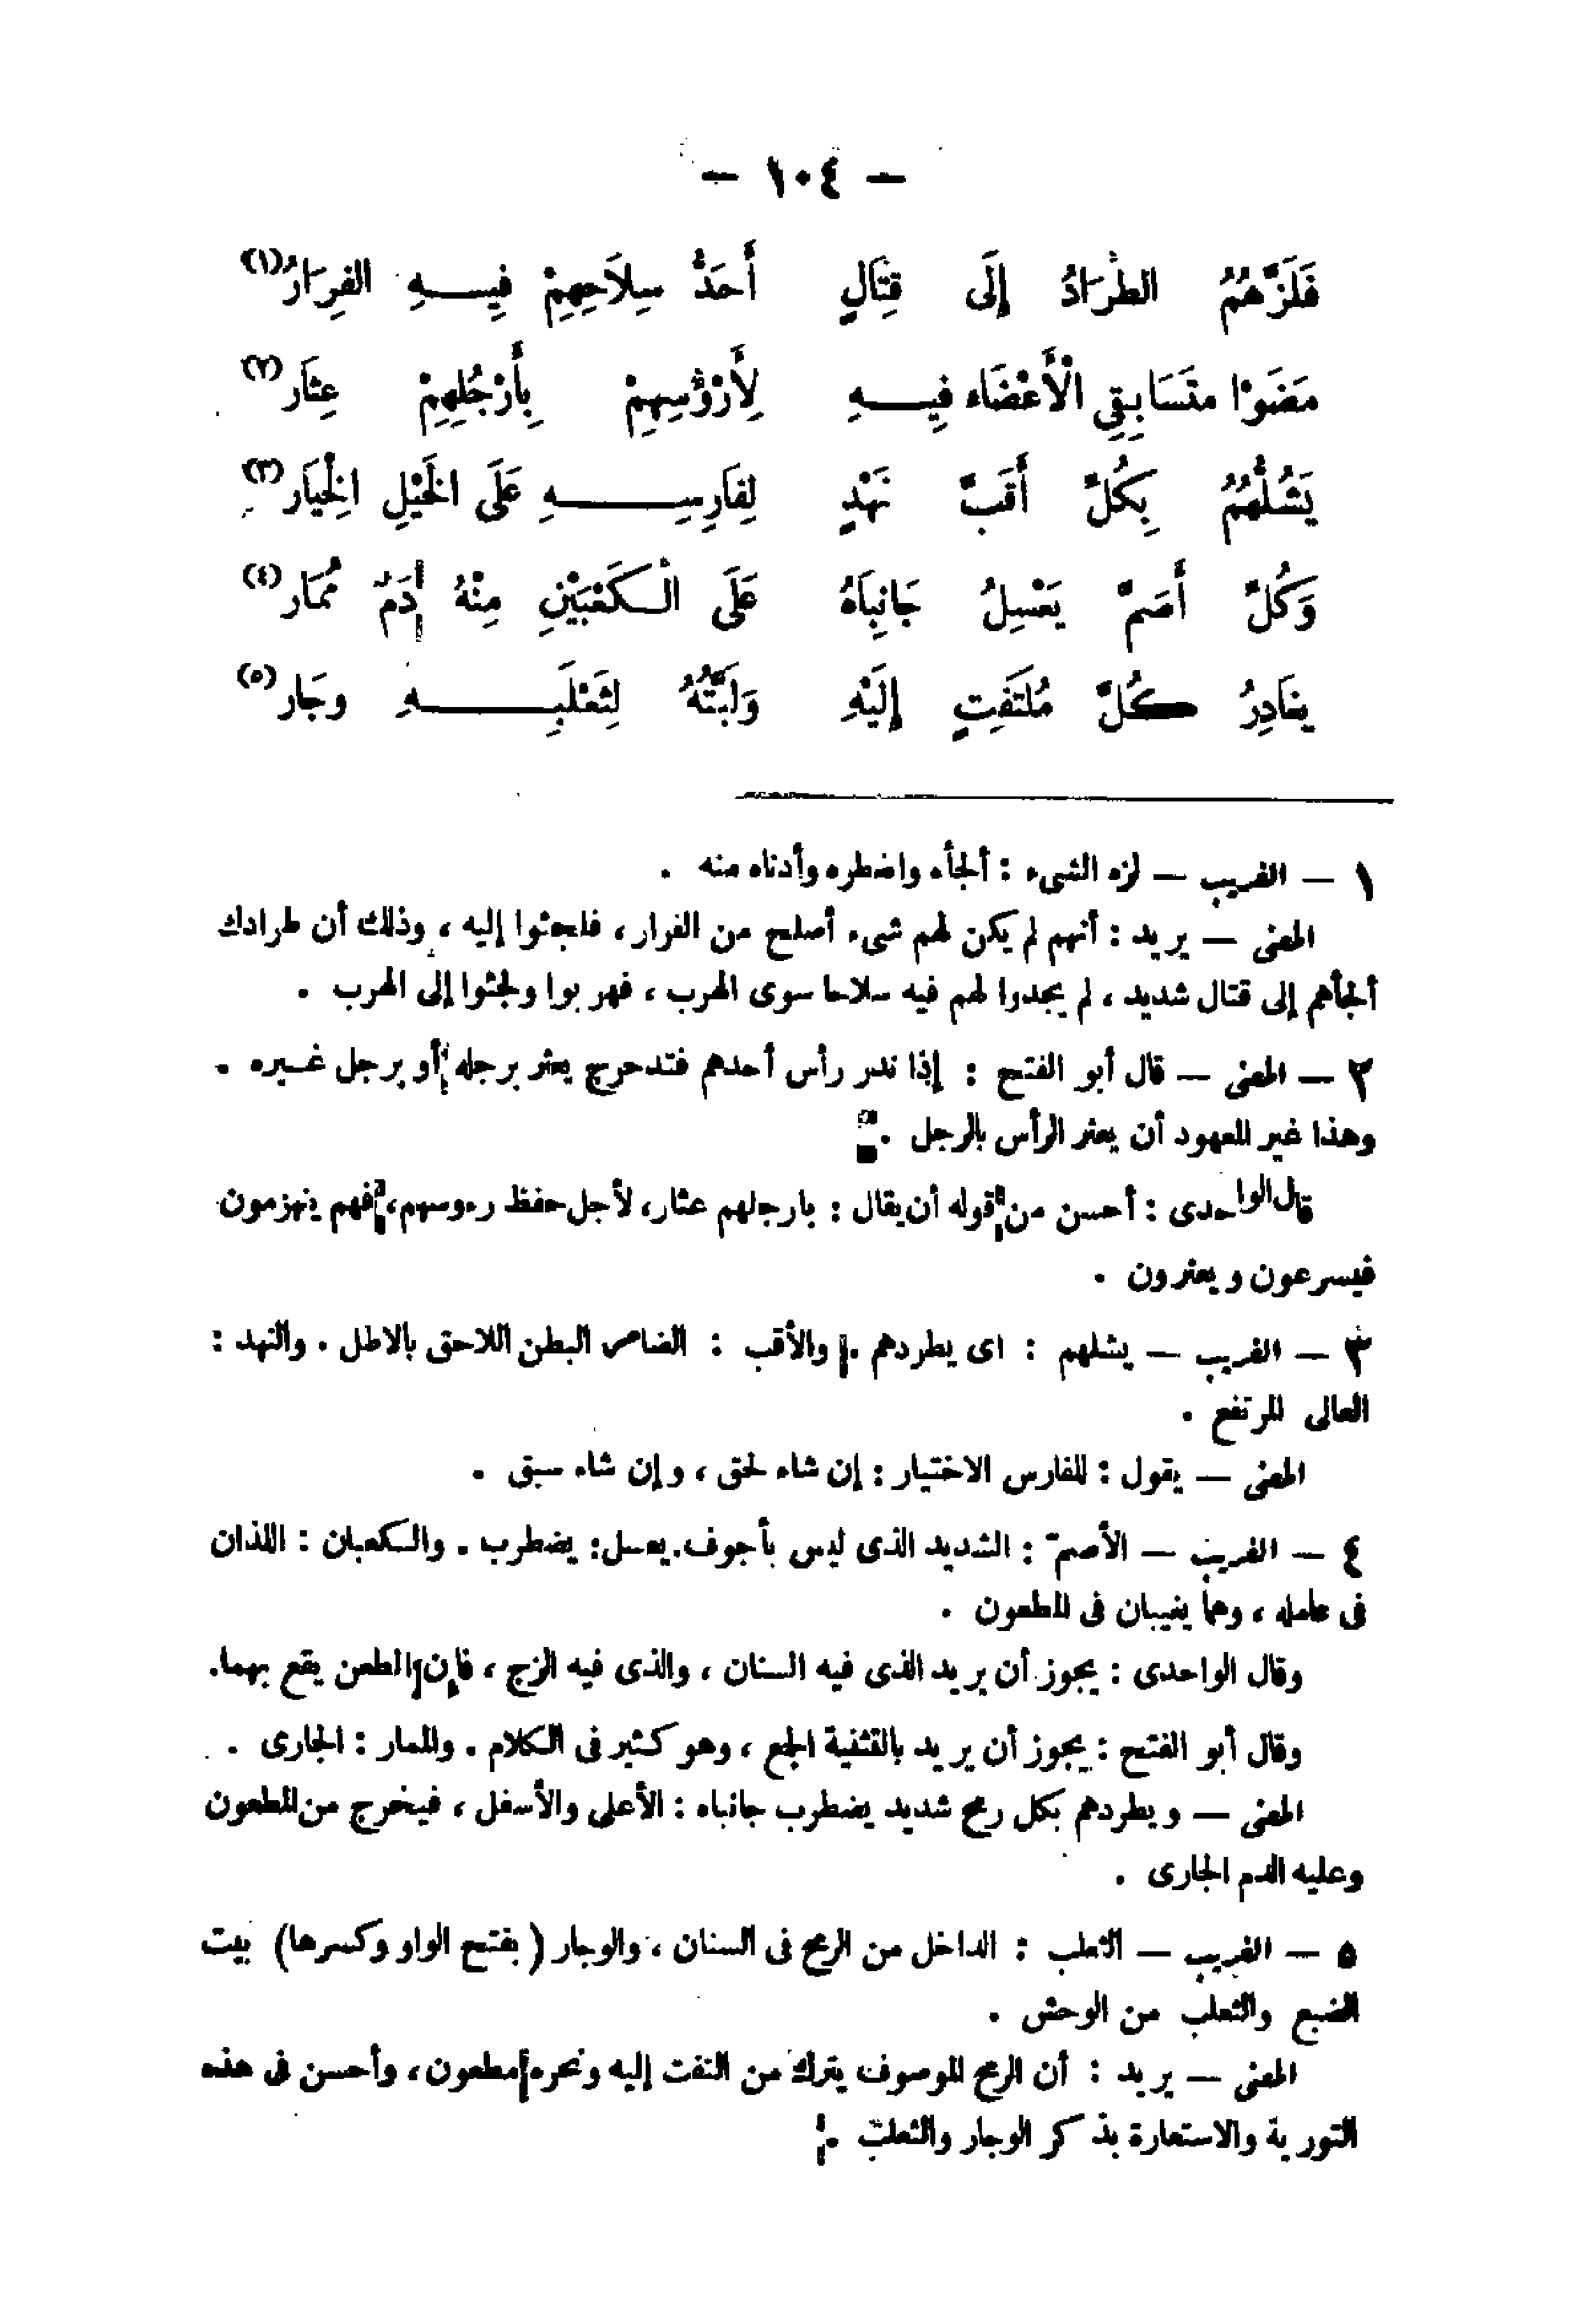 — ١٠٤ —
فَلَزَّهُمُ الطِّرَادُ إِلَى قِتَالٍ أَحَدُّ سِلاَحِهِمْ فِيهِ الفِرَارُ (١)
مَضَوْا متَسَابِقِي الْأَعْضَاء فِيهِ لِأَرْؤُسِهِمْ بِأَرْجُلِهِمْ عِثَار (٢)
يَشُلُّهُمُ بِكُلِّ أَقَبَّ نَهْدٍ لِفَارِسِهِ عَلَى الخَيْلِ الْخِيَار (٣)
وَكُلِّ أَصَمَّ يَعْسِلُ جَانِبَاهُ عَلَى الْكَعْبَيْنِ مِنْهُ دَمٌ مُمَار (٤)
يغَادِرُ كُلَّ مُلتَفِتٍ إِلَيْهِ وَلَبَّتُهُ لِثَعْلَبِهِ وِجَار (٥)
١ — الغريب — لزه الشىء : ألجأه واضطره وأدناه منه .
المعنى — يريد : أنهم لم يكن لهم شىء أصلح من الفرار ، فلجئوا إليه ، وذلك أن طرادك
ألجأهم إلى قتال شديد ، لم يجدوا لهم فيه سلاحا سوى الهرب ، فهربوا ولجئوا إلى الهرب .
٢ — المعنى — قال أبو الفتح : إذا ندر رأس أحدهم فتدحرج يعثر برجله أو برجل غيره .
وهذا غير المعهود أن يعثر الرأس بالرجل .
قال الواحدى : أحسن من قوله أن يقال : بارجلهم عثار، لأجل حفظ رءوسهم، فهم ينهزمون
فيسرعون ويعثرون .
٣ — الغريب — يشلهم : اى يطردهم . والأقب : الضامر البطن اللاحق بالاطل . والنهد :
العالى المرتفع .
المعنى — يقول : للفارس الاختيار : إن شاء لحق ، وإن شاء سبق .
٤ — الغريب — الأصمّ : الشديد الذى ليس بأجوف. يعسل: يضطرب . والكعبان : اللذان
فى عامله ، وهما يغيبان فى المطعون .
وقال الواحدى : يجوز أن يريد الذى فيه السنان ، والذى فيه الزج ، فإن الطعن يقع بهما.
وقال أبو الفتح : يجوز أن يريد بالتثنية الجمع ، وهو كثير فى الكلام . والممار : الجارى .
المعنى — ويطردهم بكل رمح شديد يضطرب جانباه : الأعلى والأسفل ، فيخرج من المطعون
وعليه الدم الجارى .
٥ — الغريب — الثعلب : الداخل من الرمح فى السنان ، والوجار ( بفتح الواو وكسرها) بيت
الضبع والثعلب من الوحش .
المعنى — يريد : أن الرمح الموصوف يترك من التفت إليه ونحره مطعون ، وأحسن فى هذه
التورية والاستعارة بذكر الوجار والثعلب .